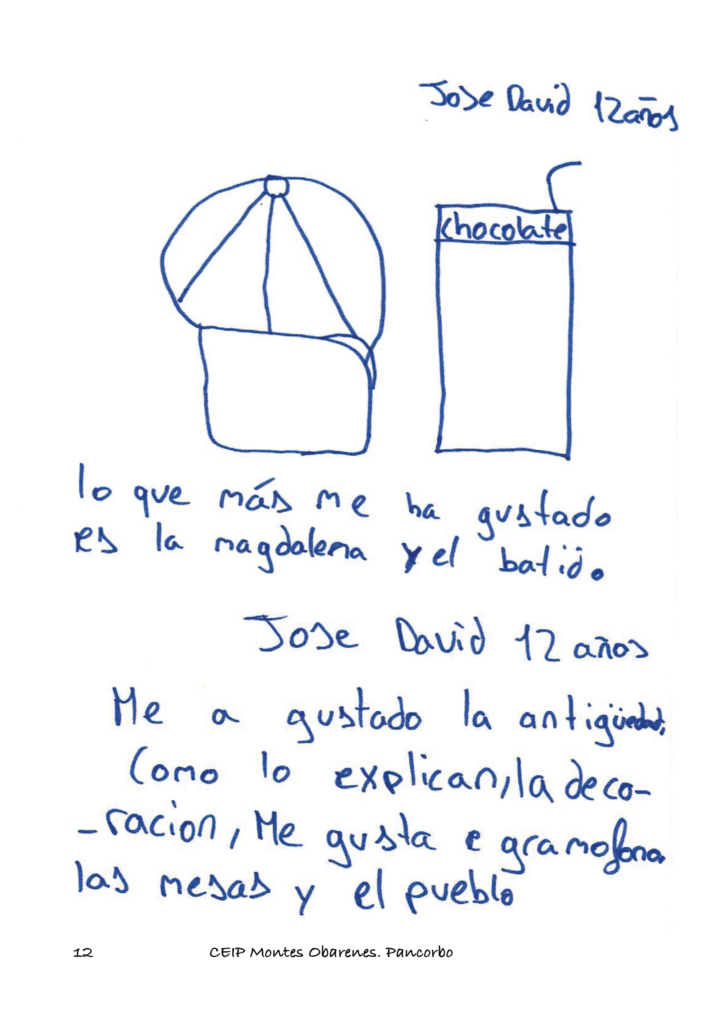 Jose David 12 años
chocolate
lo que más me ha gustado
es la magdalena y el batido.
Jose David 12 años
Me a gustado la antigüedad,
Como lo explican, la deco-
-racion, Me gusta e gramofono
las mesas y el pueblo
12 CEIP Montes Obarenes. Pancorbo